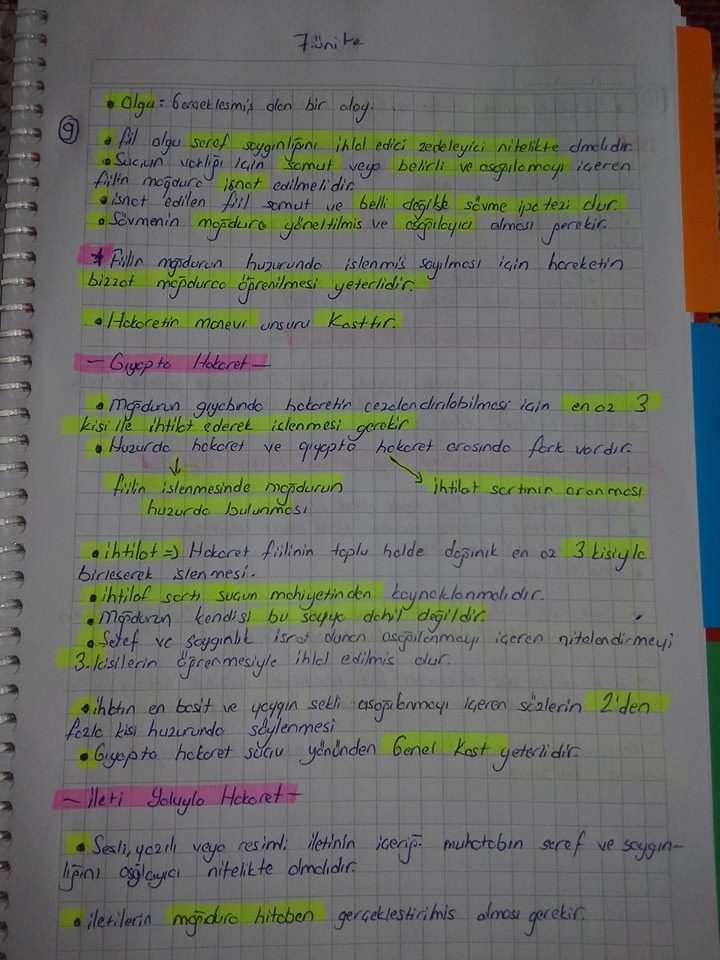 7.ünite
• Olgu = Gerçekleşmiş olan bir olay.
9
• fiil olgu şeref saygınlığını ihlal edici zedeleyici nitelikte olmalıdır.
• Suçun varlığı için somut veya belirli ve aşağılamayı içeren
fiilin mağdura isnat edilmelidir.
• isnat edilen fiil somut ve belli değilse sövme ipotezi olur.
• Sövmenin mağdura yöneltilmiş ve aşağılayıcı olması gerekir.
* Fiilin mağdurun huzurunda işlenmiş sayılması için hareketin
bizzat mağdurca öğrenilmesi yeterlidir.
• Hakaretin manevi unsuru Kasttır.
— Gıyapta Hakaret —
• Mağdurun gıyabında hakaretin cezalandırılabilmesi için en az 3
kişi ile ihtilat ederek işlenmesi gerekir
• Huzurda hakaret ve gıyapta hakaret arasında fark vardır.
fiilin işlenmesinde mağdurun
huzurda bulunması
ihtilat şartının aranması
• ihtilat => Hakaret fiilinin toplu halde dağınık en az 3 kişiyle
birleşerek işlenmesi.
• ihtilaf şartı suçun mahiyetinden kaynaklanmalıdır.
• Mağdurun kendisi bu sayıya dahil değildir.
• Şeref ve saygınlık isnat olunan aşağılanmayı içeren nitelendirmeyi
3. kişilerin öğrenmesiyle ihlal edilmiş olur.
• ihtilatın en basit ve yaygın şekli aşağılanmayı içeren sözlerin 2'den
fazla kişi huzurunda söylenmesi
• Gıyapta hakaret suçu yönünden Genel Kast yeterlidir.
— İleti Yoluyla Hakaret —
• Sesli, yazılı veya resimli iletinin içeriği muhatabın şeref ve saygın-
lığını aşağılayıcı nitelikte olmalıdır.
• iletilerin mağdura hitaben gerçekleştirilmiş olması gerekir.